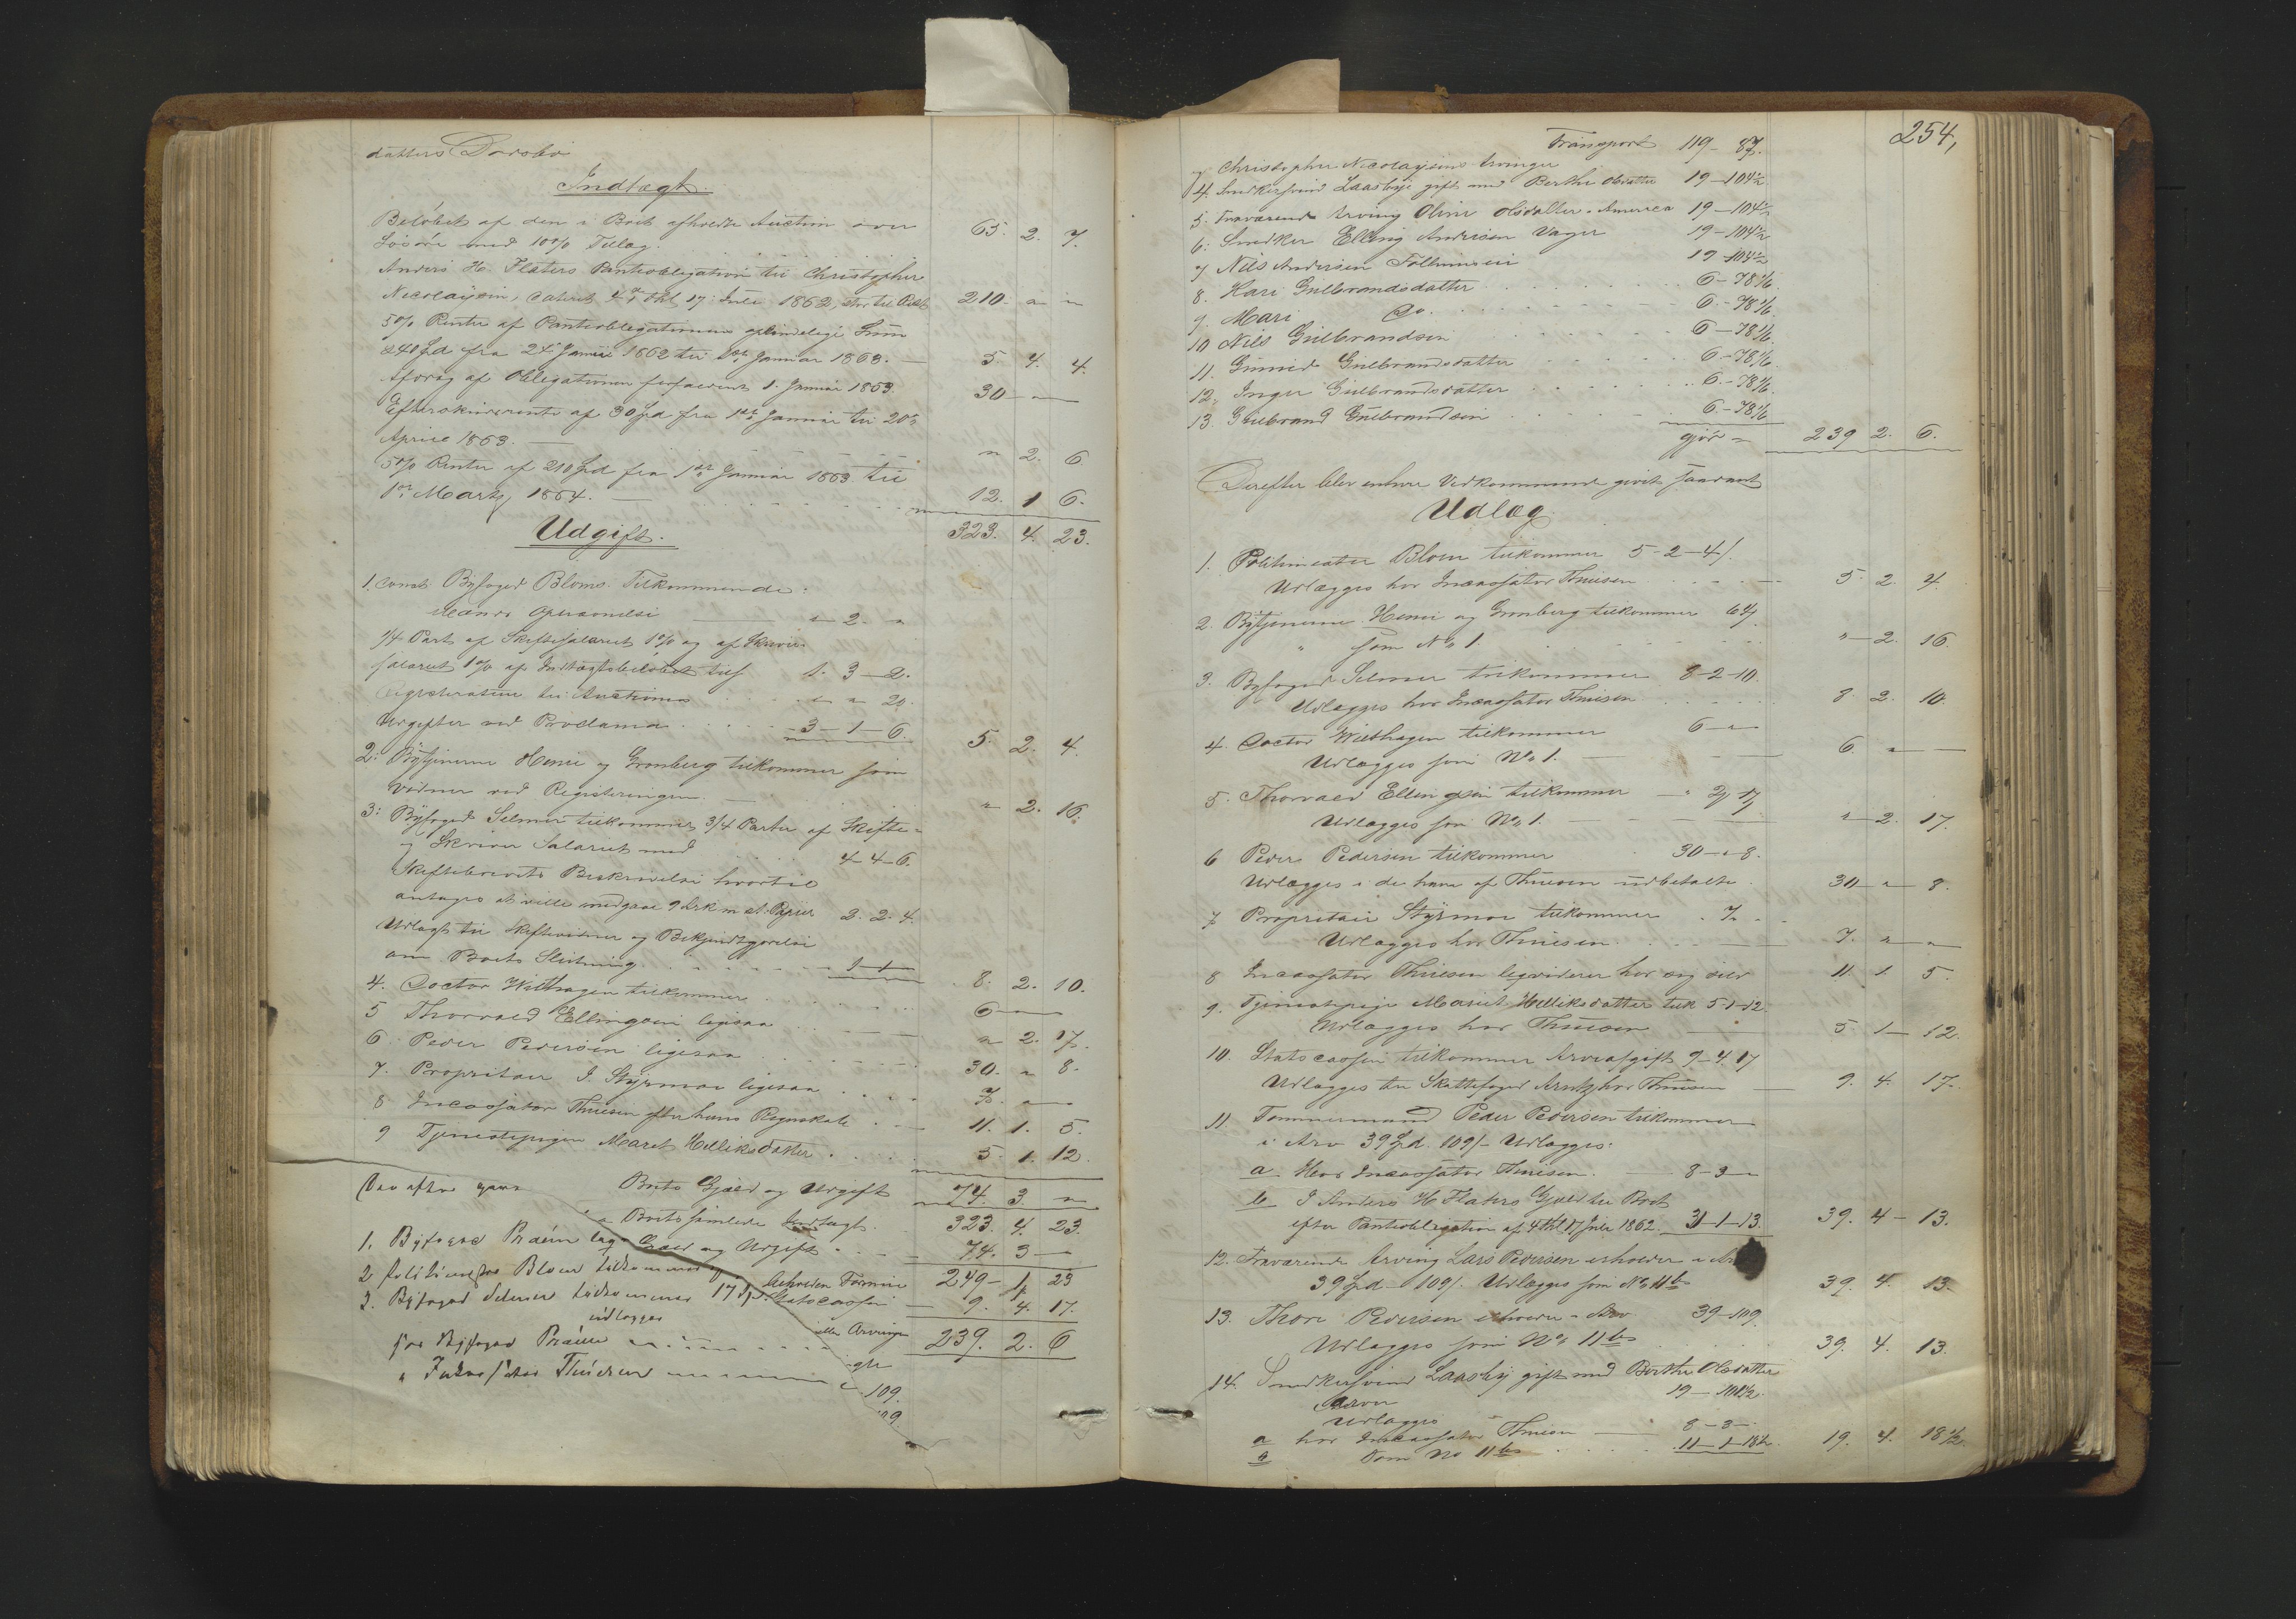 datters Dødsbo
Indtægt.
Beløbet af den i Boet afholdte Auction over
Løsøre med 10% Tillæg. 65. 2. 7.
Anders H. Flaters Pantobligation til Christopher
Nicolaysen, dateret 4de thl 17 Juli 1862, stor til Rest 210. " "
5% Renter af Pantobligationens oprindelige Sum
240 Spd fra 24de Januar 1862 til 1ste Januar 1863. — 5. 4. 4.
Afdrag af Obligationen forfaldent 1. Januar 1863. 30 — —
Efterskudsrente af 30 Spd fra 1ste Januar til 20de
April 1863. — " 2. 6.
5% Renter af 210 Spd fra 1ste Januar 1863 til
1ste Marts 1864. — 12. 1 6.
323. 4. 23.
Udgift.
1. const. Byfoged Bloms Tilkommende:
Opsendelse " 2. "
1/4 Part af Skiftesalariet 1% og af Skriver
salariet 1% af Indtægtsbeløbet tils 1. 3 — 2.
Registrature til Auctionen " " 20.
Udgifter ved Proclama 3 — 1 — 6. 5. 2. 4.
2: Bytjenerne Henie og Gronberg tilkommer som
Vidner ved Registreringen — " 2. 16.
3: Byfoged Selmer tilkommer 3/4 Parter af Skifte-
og Skriver Salariet med 4 - 4 - 6.
Skiftebrevets Beskrivelse hvortil
antages at ville medgaae 9 Ark m st. Papir 2. 2. 4.
Udlagt til Skiftevidner og Bekjendtgjørelse
om Boets Slutning 1 1 — 8. 2. 10.
4. Doctor Withagen tilkommer 6 — —
5 Thorvald Ellingsen ligesaa " 2. 17.
6 Peder Pedersen ligesaa 30. " 8.
7. Propritair J. Styrmoe ligesaa 7. " —
8 Incassator Thuesen efter hans Regnskab. — 11. 1. 5.
9 Tjenestepigen Maret Helliksdatter. 5. 1. 12.
Boets Gjæld og Udgift 74. 3 "
Boets samlede Indtægt. 323. 4. 23.
Gjæld og Udgift 74. 3 —
Beholden Formue 249 — 1. 23
Statscassen — 9. 4. 17.
Arvinger 239. 2. 6
1. Byfoged
2 Politimester Blom tilkommer
3. Byfoged Selmer tilkommer 17
udlægges
hos Byfoged
" Incassator Thuesen
109.
254,
Transport 119 - 87.
Christopher Nicolaysens Arvinger
4. Snedkersvend Laasbye gift med Berthe Olsdatter 19 — 104½
5. Fraværende Arving Oline Olsdatter i America 19 — 104½
6: Snedker Elling Andersen Vager 19 — 104½
7 Nils Andersen 19 - 104½
8. Kari Gulbrandsdatter 6 - 78 1/6
9. Mari Do. 6 - 78 1/6
10 Nils Gulbrandsen 6 - 78 1/6
11. Gunild Gulbrandsdatter 6 - 78 1/6
12. Inger Gulbrandsdatter 6 - 78 1/6
13. Gulbrand Gulbrandsen 6. - 78 1/6
gjør — 239 2. 6.
Derefter blev enhver Vedkommende givet saadant
Udlæg.
1. Politimester Blom tilkommer 5 - 2 - 4 /.
Udlægges hos Incassator Thuesen 5. 2. 4.
2. Bytjenerne Henie og Gronberg tilkommer 64/
" som No 1. " — 2. 16.
3. Byfoged Selmer tilkommer 8 - 2 - 10.
Udlægges hos Incassator Thuesen 8. 2. 10.
4. Doctor Withagen tilkommer 6 — "
Udlægges som No 1. — 6. " —
5. Thorvald Ellingsen tilkommer — " 2/ 17/
Udlægges som No 1. " — 2. 17.
6 Peder Pedersen tilkommer 30 — " 8.
Udlægges i de ham af Thuesen udbetalte. 30 " — 8.
7 Propritair Styrmoe tilkommer 7.
Udlægges hos Thuesen 7. " "
8 Incassator Thuesen liqviderer hos sig selv 11. 1. 5.
9. Tjenestepige Marit Helliksdatter tilk 5 - 1 - 12.
Udlægges hos Thuesen 5. 1 — 12.
10. Statscassen tilkommer Arveafgift 9 - 4. 17
Udlægges til Skattefoged Arntz hos Thuesen 9. 4. 17.
11. Tømmermand Peder Pedersen tilkommer
i Arv 39 Spd 109/- Udlægges:
a. Hos Incassator Thuesen. — 8 - 3 —
b I Anders H Flaters Gjæld til Boet
efter Pantobligation af 4 thl 17 Juli 1862. 31 - 1 - 13. 39. 4 - 13.
12. Fraværende Arving Lars Pedersen erholder i
39 Spd - 109/. Udlægges som No 11 b 39. 4. 13.
13. Thore Pedersen erholder i Arv 39 - 109.
Udlægges som No 11 b 39. 4. 13.
14. Snedkersvend Laasby gift med Berthe Olsdatter
Arver 19 — 104½.
Udlægges
a hos Incassator Thuesen — 8 - 3 —
b som No 11 b 11 - 1 - 18½ 19. 4. 18½